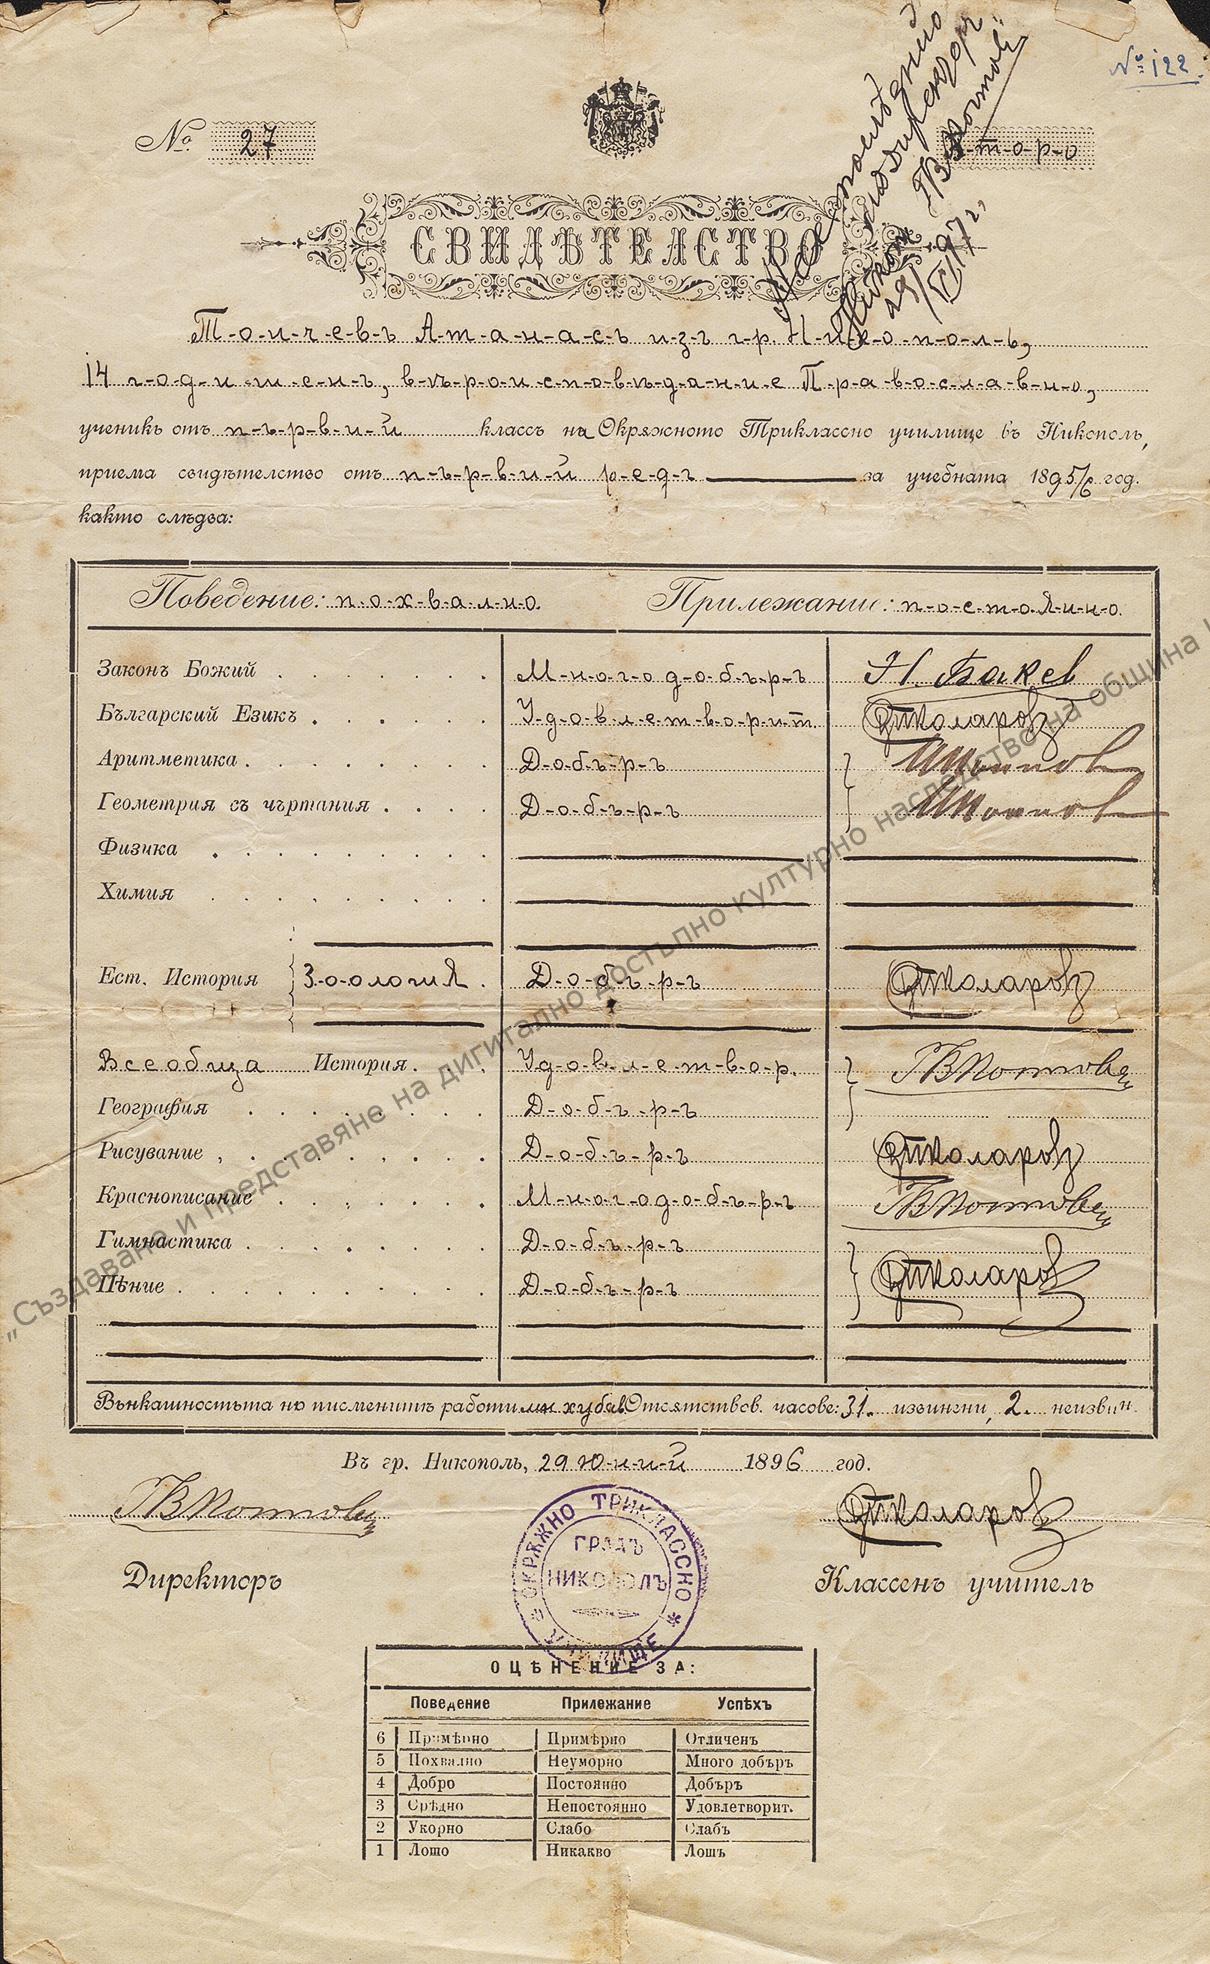 № 122.
№ 27
В-т-о-р-о
СВИДѢТЕЛСТВО
29/VI 97 г.
Т-о-н-ч-е-в-ъ А-т-а-н-а-с-ъ и-з-ъ г-р. Н-и-к-о-п-о-л-ь,
14 г-о-д-и-ш-е-н-ъ, в-ѣ-р-о-и-с-п-о-в-ѣ-д-а-н-и-е П-р-а-в-о-с-л-а-в-н-о,
ученикъ отъ п-ъ-р-в-и-й классъ на Окрѫжното Триклассно училище въ Никополь,
приема свидѣтелство отъ п-ъ-р-в-и-й р-е-д-ъ за учебната 1895/6 год.
както слѣдва:
Поведение: п-о-х-в-а-л-н-о. Прилежание: п-о-с-т-о-я-н-н-о.
Законъ Божий М-н-о-г-о д-о-б-ъ-р-ъ Н. Бакев
Българский Езикъ У-д-о-в-л-е-т-в-о-р-и-т. Коларов
Аритметика Д-о-б-ъ-р-ъ
Геометрия съ чъртания Д-о-б-ъ-р-ъ
Физика
Химия
Ест. История З-о-о-л-о-г-и-я. Д-о-б-ъ-р-ъ Коларов
Всеобща История. У-д-о-в-л-е-т-в-о-р.
География Д-о-б-ъ-р-ъ
Рисувание Д-о-б-ъ-р-ъ Коларов
Краснописание М-н-о-г-о д-о-б-ъ-р-ъ
Гимнастика Д-о-б-ъ-р-ъ
Пѣние Д-о-б-ъ-р-ъ Коларов
Вънкашностьта на писменитѣ работи му хубав. Отсѫтствов. часове: 31. извинени, 2. неизвин.
Въ гр. Никополь, 29 Ю-н-и-й 1896 год.
Коларов
Директоръ Классенъ учитель
ОКРѪЖНО ТРИКЛАССНО УЧИЛИЩЕ
ГРАДЪ
НИКОПОЛЪ
ОЦѢНЕНИЕ ЗА:
Поведение Прилежание Успѣхъ
6 Примѣрно Примѣрно Отличенъ
5 Похвално Неуморно Много добъръ
4 Добро Постоянно Добъръ
3 Срѣдно Непостоянно Удовлетворит.
2 Укорно Слабо Слабъ
1 Лошо Никакво Лошъ
„Създаване и представяне на дигитално достъпно културно наследство на община